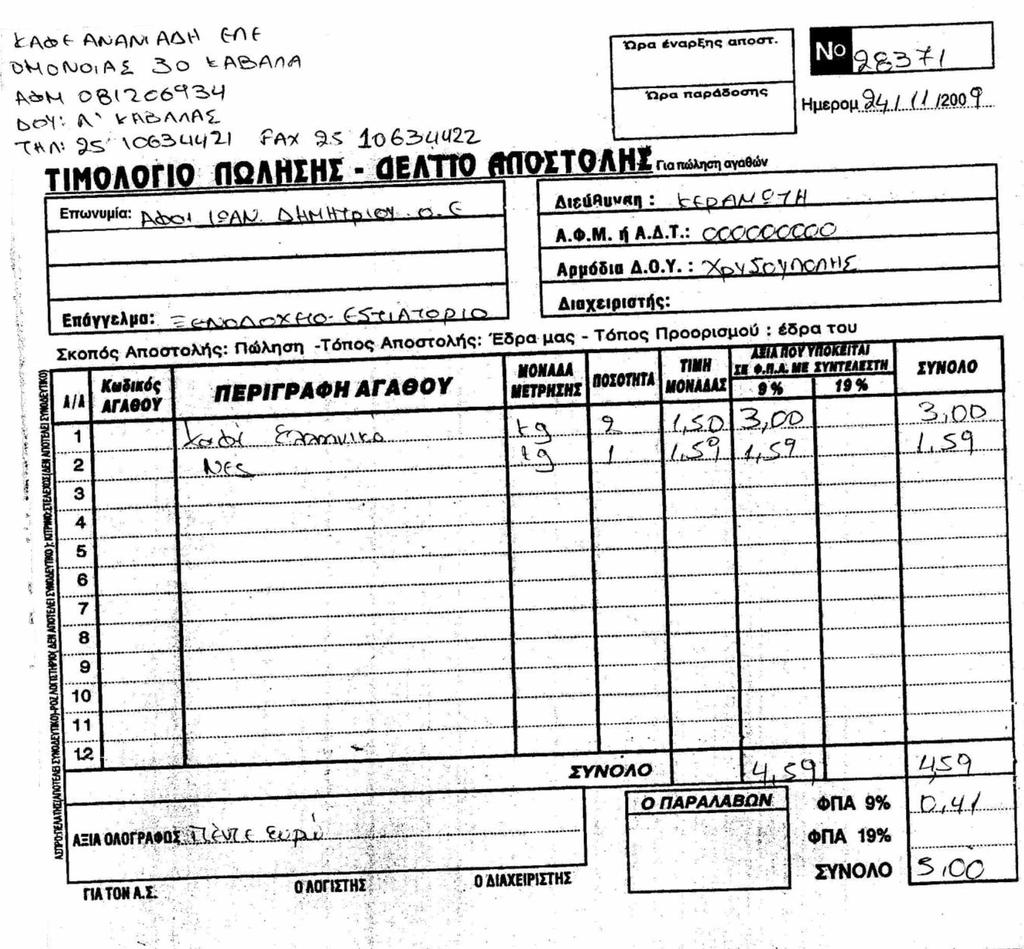 ΚΑΦΕ ΑΝΑΝΙΑΔΗ ΕΠΕ
ΟΜΟΝΟΙΑΣ 30 ΚΑΒΑΛΑ
ΑΦΜ 081206934
ΔΟΥ: Α' ΚΑΒΑΛΑΣ
ΤΗΛ: 25 10634421 FAX 25 10634422
Ώρα έναρξης αποστ.
Ώρα παράδοσης
Νο 28371
Ημερομ 24/11/2009
ΤΙΜΟΛΟΓΙΟ ΠΩΛΗΣΗΣ - ΔΕΛΤΙΟ ΑΠΟΣΤΟΛΗΣ Για πώληση αγαθών
Επωνυμία: ΑΦΟΙ ΙΩΑΝ. ΔΗΜΗΤΡΙΟΥ Ο.Ε
Επάγγελμα: ΞΕΝΟΔΟΧΕΙΟ-ΕΣΤΙΑΤΟΡΙΟ
Διεύθυνση: ΚΕΡΑΜΩΤΗ
Α.Φ.Μ. ή Α.Δ.Τ.: 000000000
Αρμόδια Δ.Ο.Υ.: ΧρυΣουΠΟΛΗΣ
Διαχειριστής:
Σκοπός Αποστολής: Πώληση -Τόπος Αποστολής: Έδρα μας - Τόπος Προορισμού : έδρα του
Α/Α Κωδικός ΑΓΑΘΟΥ ΠΕΡΙΓΡΑΦΗ ΑΓΑΘΟΥ ΜΟΝΑΔΑ ΜΕΤΡΗΣΗΣ ΠΟΣΟΤΗΤΑ ΤΙΜΗ ΜΟΝΑΔΑΣ ΑΞΙΑ ΠΟΥ ΥΠΟΚΕΙΤΑΙ ΣΕ Φ.Π.Α. ΜΕ ΣΥΝΤΕΛΕΣΤΗ 9% 19% ΣΥΝΟΛΟ
1 Καφέ Ελληνικό kg 2 1,50 3,00 3,00
2 Νες kg 1 1,59 1,59 1,59
3
4
5
6
7
8
9
10
11
12
ΣΥΝΟΛΟ 4,59 4,59
ΑΞΙΑ ΟΛΟΓΡΑΦΩΣ Πέντε Ευρώ
Ο ΠΑΡΑΛΑΒΩΝ
ΦΠΑ 9% 0,41
ΦΠΑ 19%
ΣΥΝΟΛΟ 5,00
ΓΙΑ ΤΟΝ Α.Σ. Ο ΛΟΓΙΣΤΗΣ Ο ΔΙΑΧΕΙΡΙΣΤΗΣ